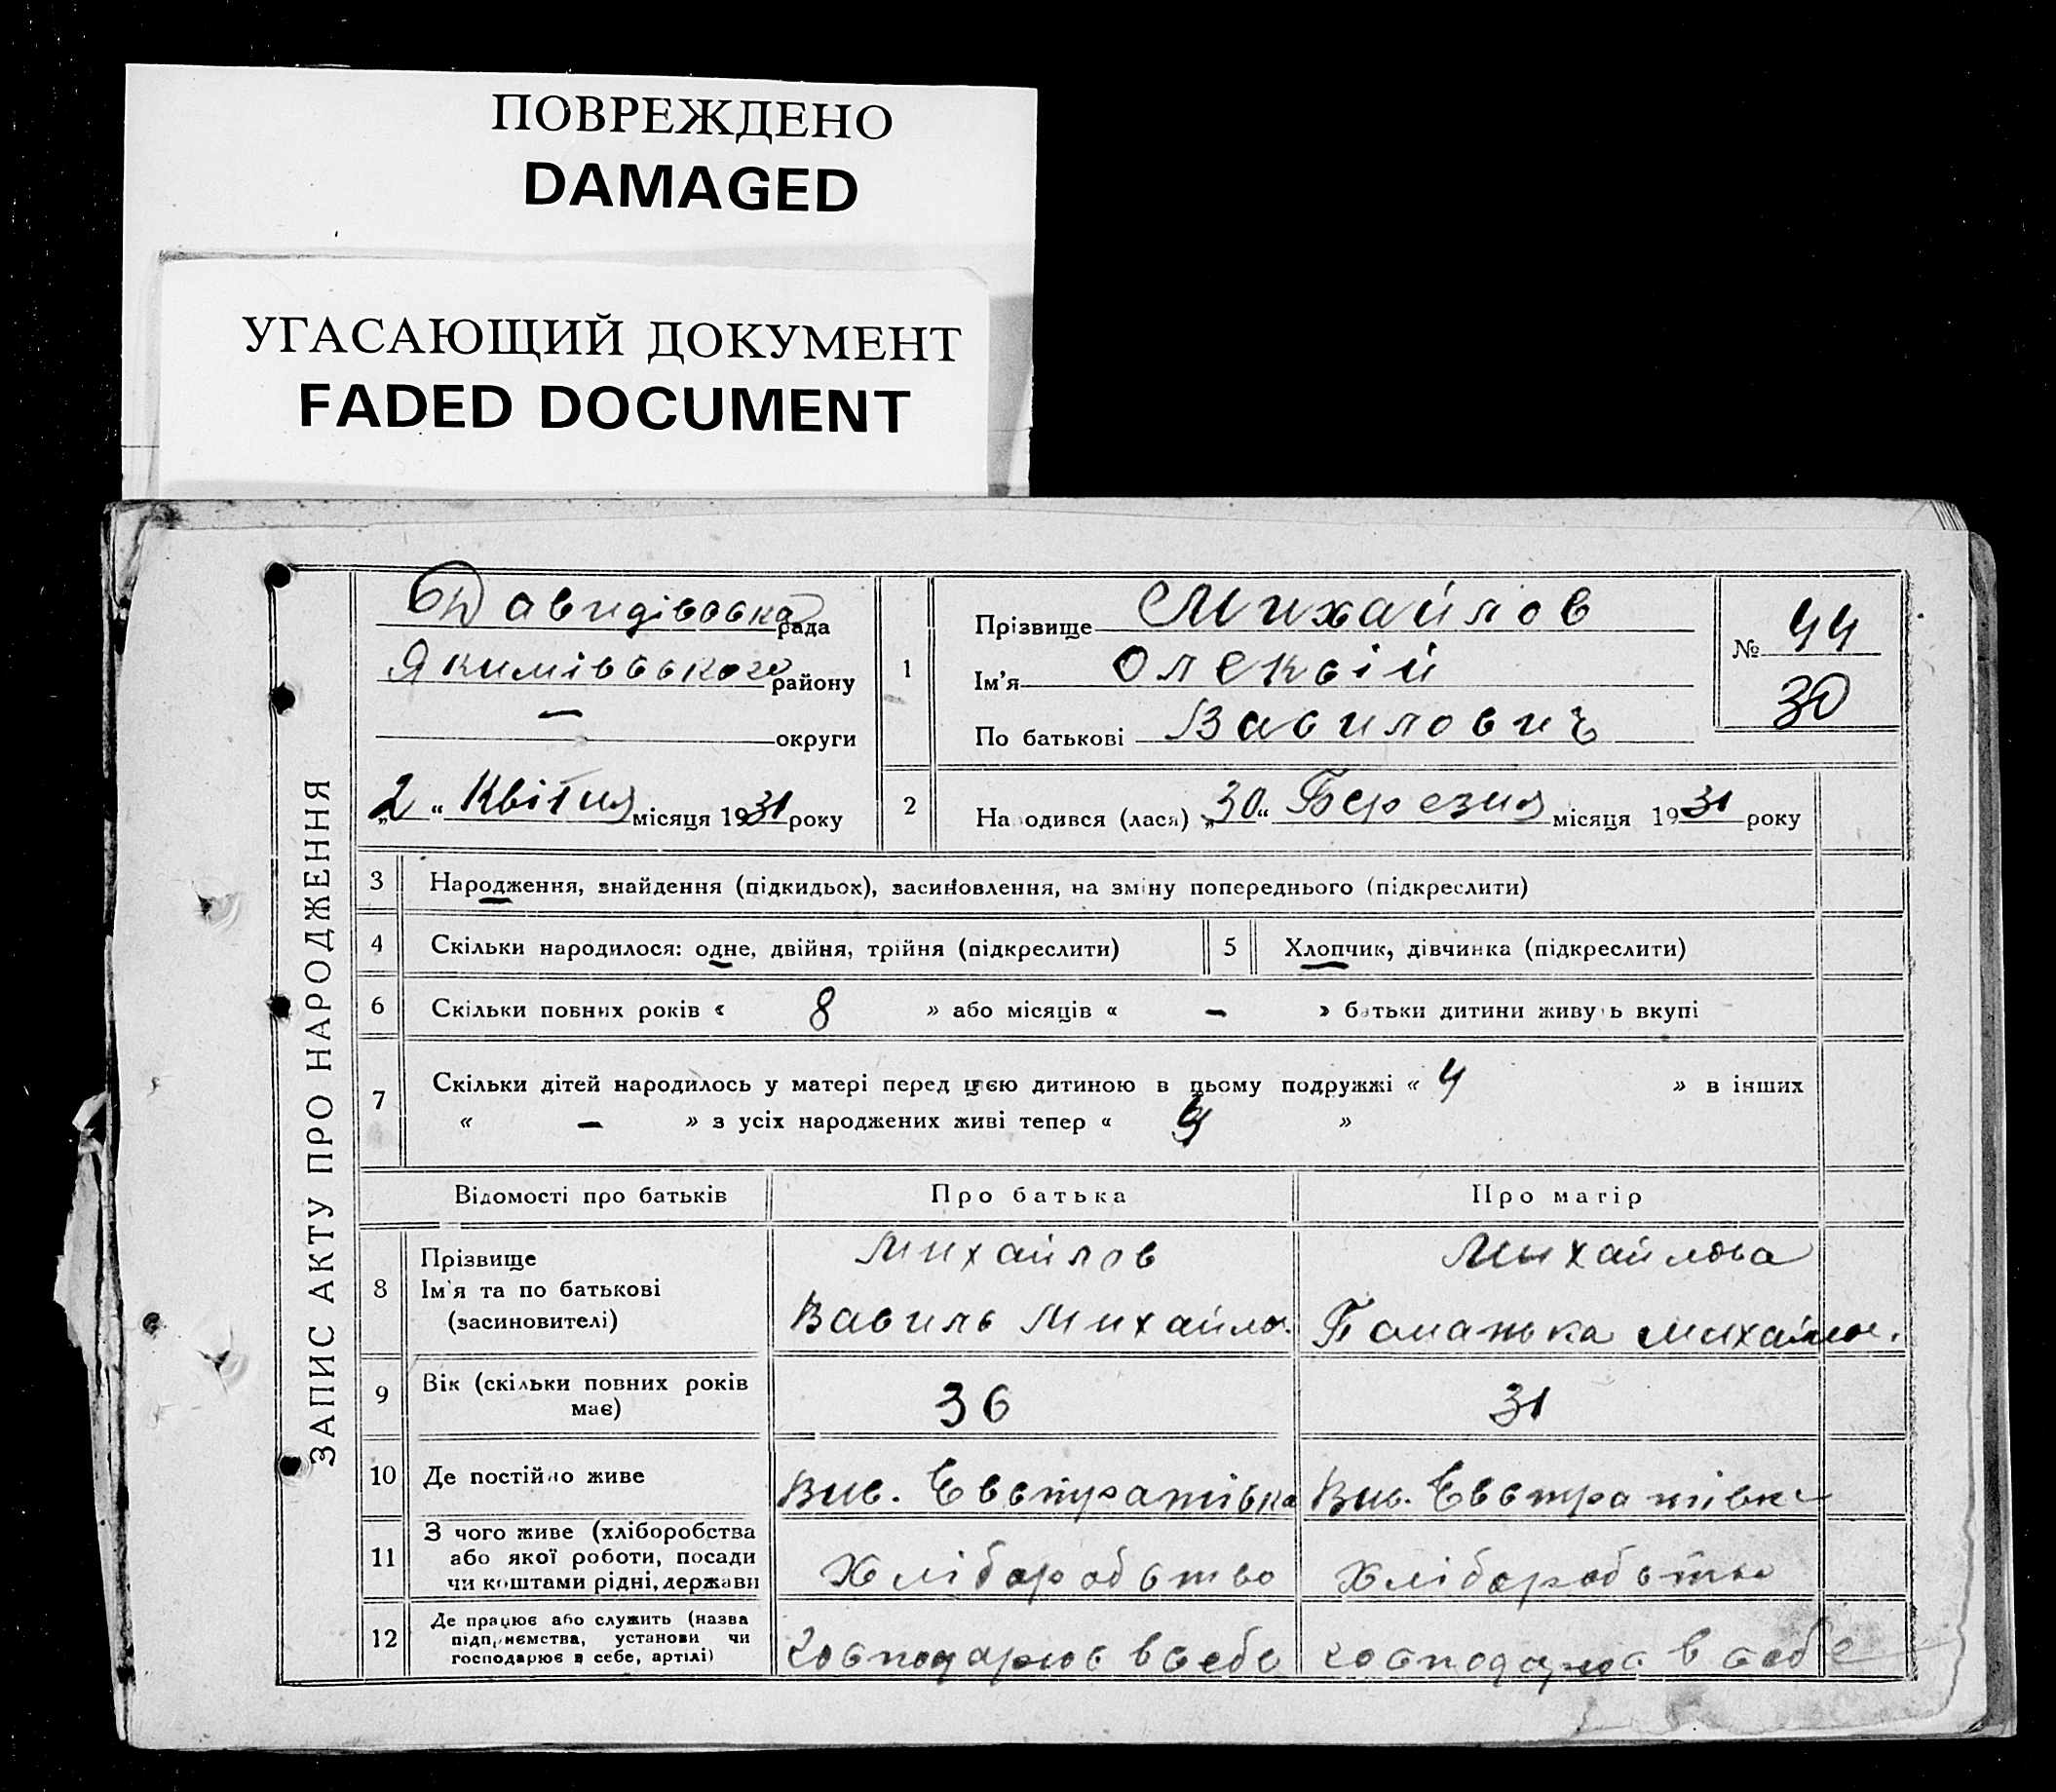 ПОВРЕЖДЕНО
DAMAGED
УГАСАЮЩИЙ ДОКУМЕНТ
FADED DOCUMENT
ЗАПИС АКТУ ПРО НАРОДЖЕННЯ
Давидівська рада
Якимівського району
— округи
„2“ Квітня місяця 1931 року
1
Прізвище Михайлов
Ім’я Олексій
По батькові Вавилович
№ 44
30
2
Народився (лася) „30“ Березня місяця 1931 року
3 Народження, знайдення (підкидьок), засиновлення, на зміну попереднього (підкреслити)
4 Скільки народилося: одне, двійня, трійня (підкреслити) 5 Хлопчик, дівчинка (підкреслити)
6 Скільки повних років « 8 » або місяців « — » батьки дитини живуть вкупі
7 Скільки дітей народилось у матері перед цією дитиною в цьому подружжі « 4 » в інших
« — » з усіх народжених живі тепер « »
Відомості про батьків Про батька Про матір
8 Прізвище
Ім’я та по батькові
(засиновителі)
Михайлов
Вавиль Михайло.
Михайлова
Михайлов.
9 Вік (скільки повних років
має)
36 31
10 Де постійно живе Вис. Евстратівка Вис. Евстратівка
11 З чого живе (хліборобства
або якої роботи, посади
чи коштами рідні, держави
Хліборобство Хліборобство
12 Де працює або служить (назва
підприємства, установи чи
господарює в себе, артілі)
господарює в себе господарює в себе